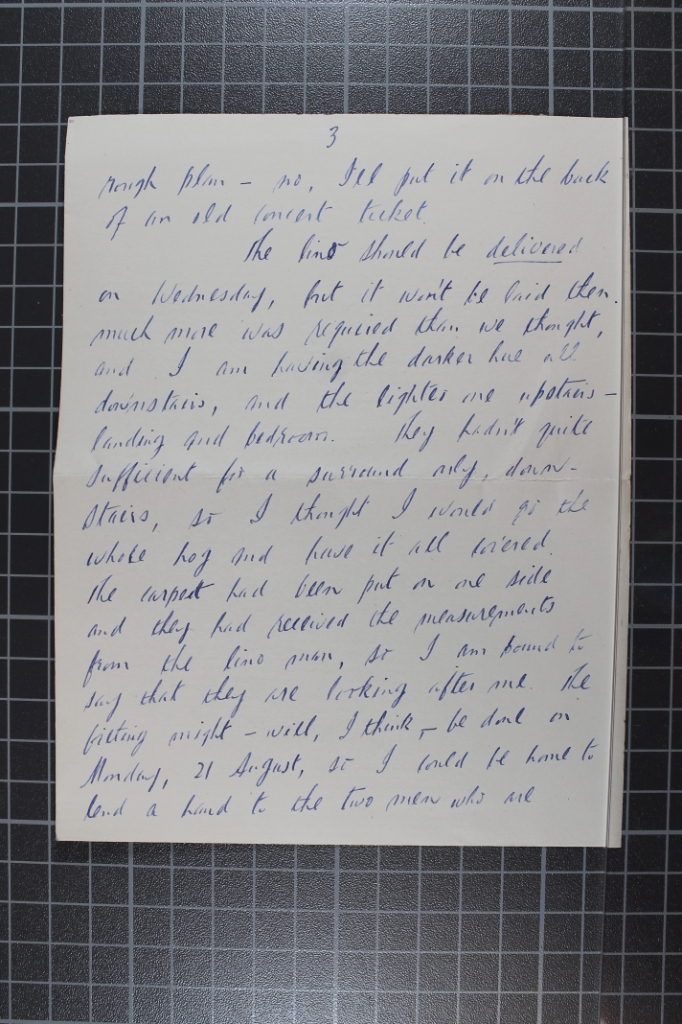 3
rough plan – no, I'll put it on the back
of an old concert ticket.
The lino should be delivered
on Wednesday, but it won't be laid then.
Much more was required than we thought,
and I am having the darker hue all
downstairs, and the lighter one upstairs –
landing and bedroom. They hadn't quite
sufficient for a surround only, down-
stairs, so I thought I would go the
whole hog and have it all covered.
The carpet had been put on one side
and they had received the measurements
from the lino man, so I am bound to
say that they are looking after me. The
fitting might – will, I think, – be done on
Monday, 21 August, so I could be home to
lend a hand to the two men who are